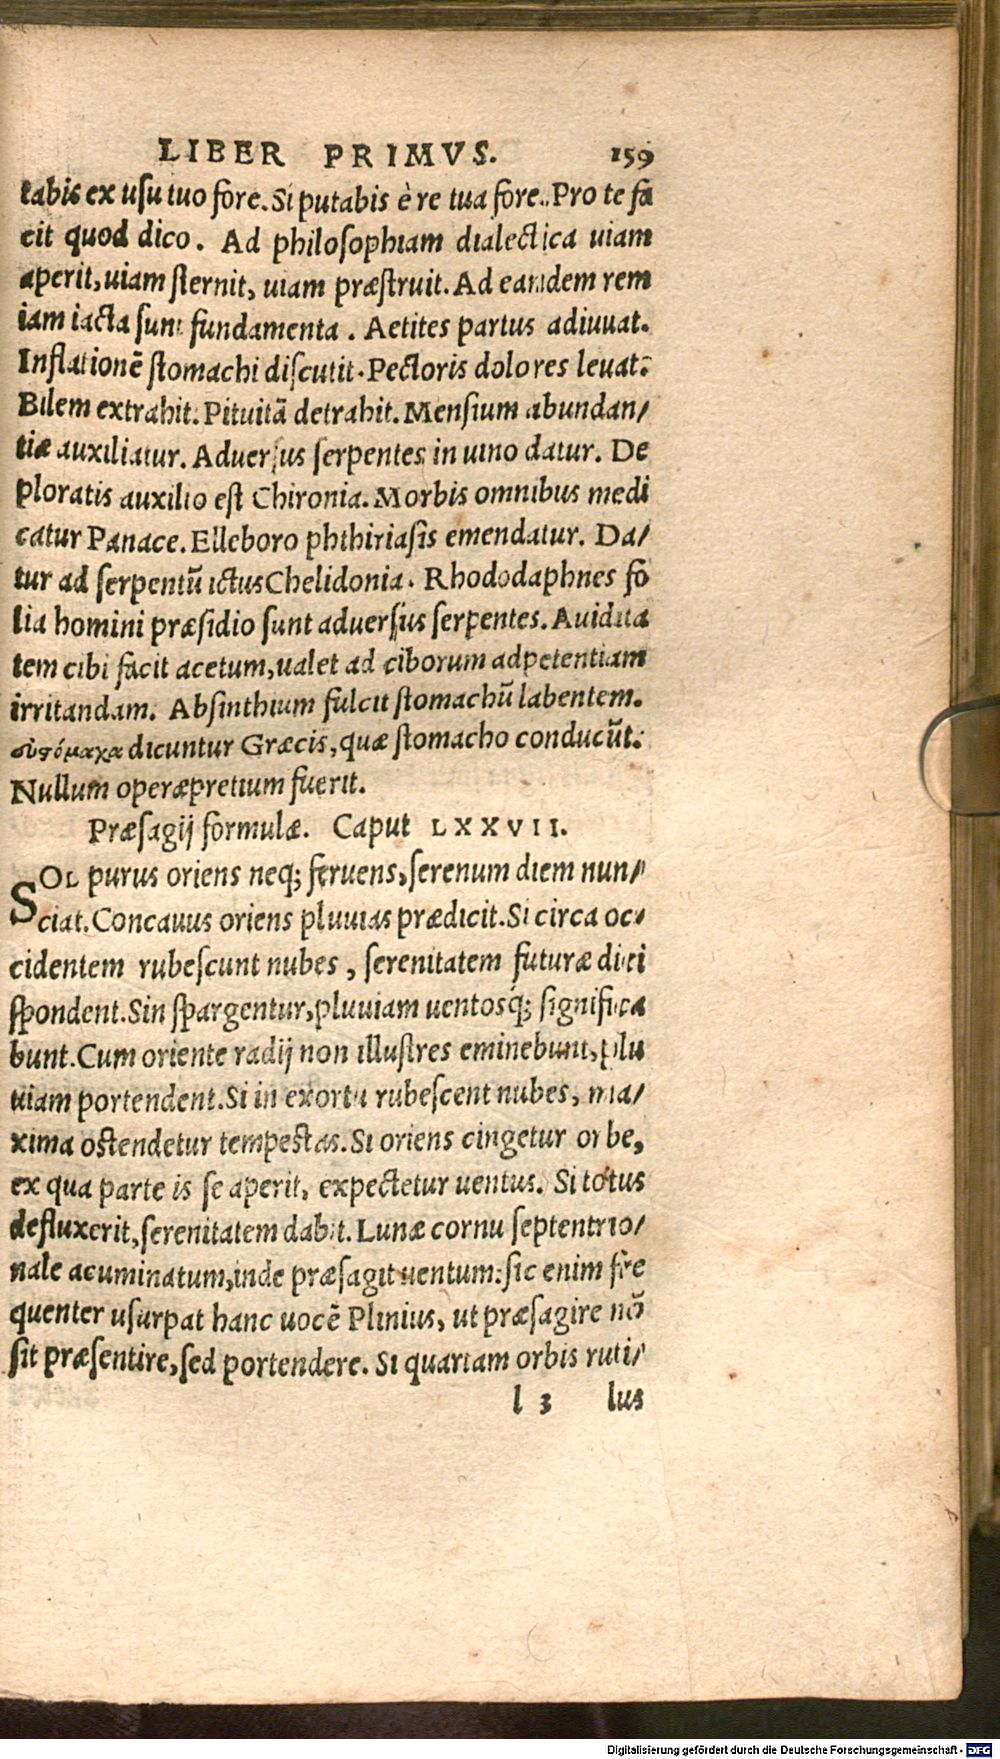 LIBER PRIMVS. 159
tabis ex uſu tuo fore. Si putabis è re tua fore.. Pro te fa
cit quod dico. Ad philoſophiam dialectica uiam
aperit, uiam ſternit, uiam præſtruit. Ad eandem rem
iam iacta ſunt fundamenta. Aetites partus adiuuat.
Inflationē ſtomachi diſcutit. Pectoris dolores leuat.
Bilem extrahit. Pituitā detrahit. Menſium abundan/
tiæ auxiliatur. Aduerſus ſerpentes in uino datur. De
ploratis auxilio eſt Chironia. Morbis omnibus medi
catur Panace. Elleboro phthiriaſis emendatur. Da/
tur ad ſerpentū ictus Chelidonia. Rhododaphnes fo
lia homini præſidio ſunt aduerſus ſerpentes. Auidita
tem cibi facit acetum, ualet ad ciborum adpetentiam
irritandam. Abſinthium fulcit ſtomachū labentem.
εὐστόμαχα dicuntur Græcis, quæ ſtomacho conducūt.
Nullum operæpretium fuerit.
Præſagij formulæ. Caput LXXVII.
SOL purus oriens neq; feruens, ſerenum diem nun/
ciat. Concauus oriens pluuias prædicit. Si circa oc/
cidentem rubeſcunt nubes, ſerenitatem futuræ diei
ſpondent. Sin ſpargentur, pluuiam uentosq́; ſignifica
bunt. Cum oriente radij non illuſtres eminebunt, plu
uiam portendent. Si in exortu rubeſcent nubes, ma/
xima oſtendetur tempeſtas. Si oriens cingetur orbe,
ex qua parte is ſe aperit, expectetur uentus. Si totus
defluxerit, ſerenitatem dabit. Lunæ cornu ſeptentrio/
nale acuminatum, inde præſagit uentum: ſic enim fre
quenter uſurpat hanc uocē Plinius, ut præſagire nō
ſit præſentire, ſed portendere. Si quartam orbis ruti/
l 3 lus
Digitalisierung gefördert durch die Deutsche Forschungsgemeinschaft - DFG